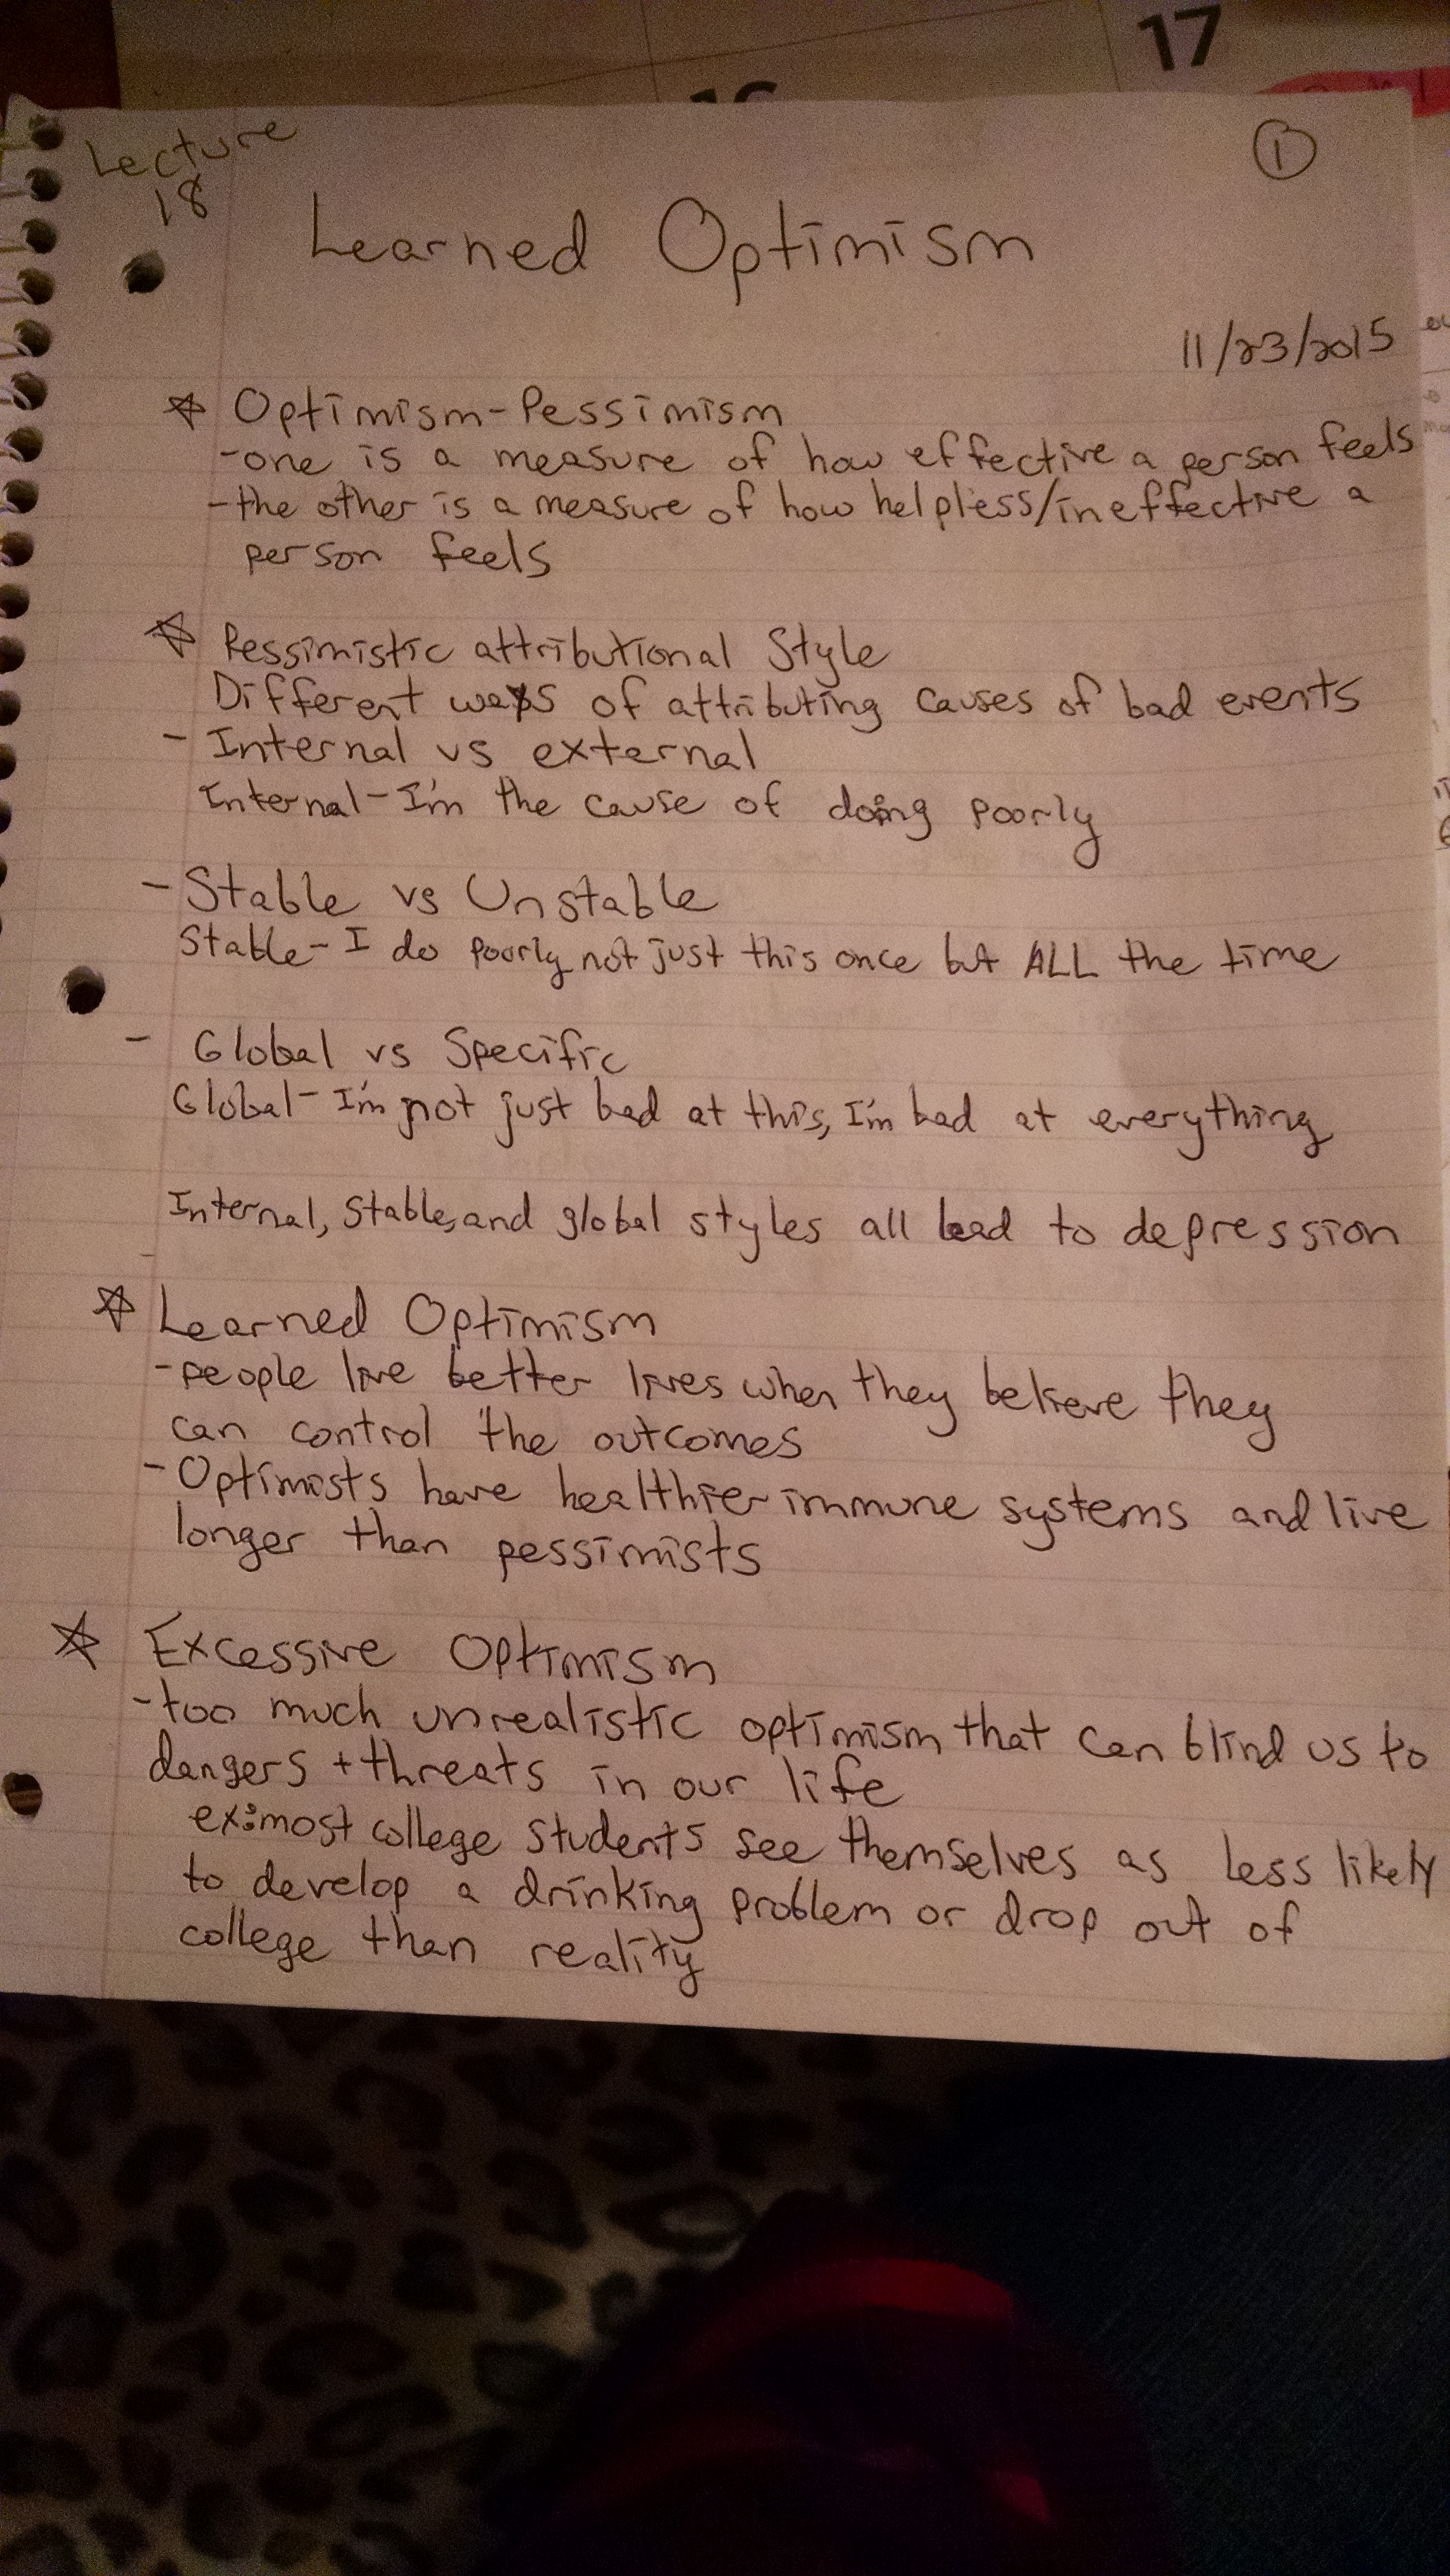 17
16
Lecture
18
①
Learned Optimism
11/23/2015
☆ Optimism-Pessimism
-one is a measure of how effective a person feels
-the other is a measure of how helpless/ineffective a
person feels
☆ Pessimistic attributional Style
Different ways of attributing causes of bad events
- Internal vs external
Internal-I'm the cause of doing poorly
- Stable vs Unstable
Stable- I do poorly not just this once but ALL the time
- Global vs Specific
Global- I'm not just bad at this, I'm bad at everything
Internal, Stable, and global styles all lead to depression
-
☆ Learned Optimism
-people live better lives when they believe they
can control the outcomes
-Optimists have healthier immune systems and live
longer than pessimists
☆ Excessive Optimism
-too much unrealistic optimism that can blind us to
dangers + threats in our life
ex: most college students see themselves as less likely
to develop a drinking problem or drop out of
college than reality